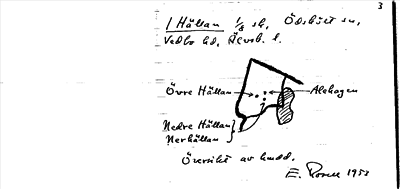 3
1 Hällan 1/8 sk, Ödsbält sn,
Vedbo hd, Älvsb. l.
Övre Hällan
Alehagen
Nedre Hällan
Nerhällan
Översikt av hmdd.
E. Rosell 1953